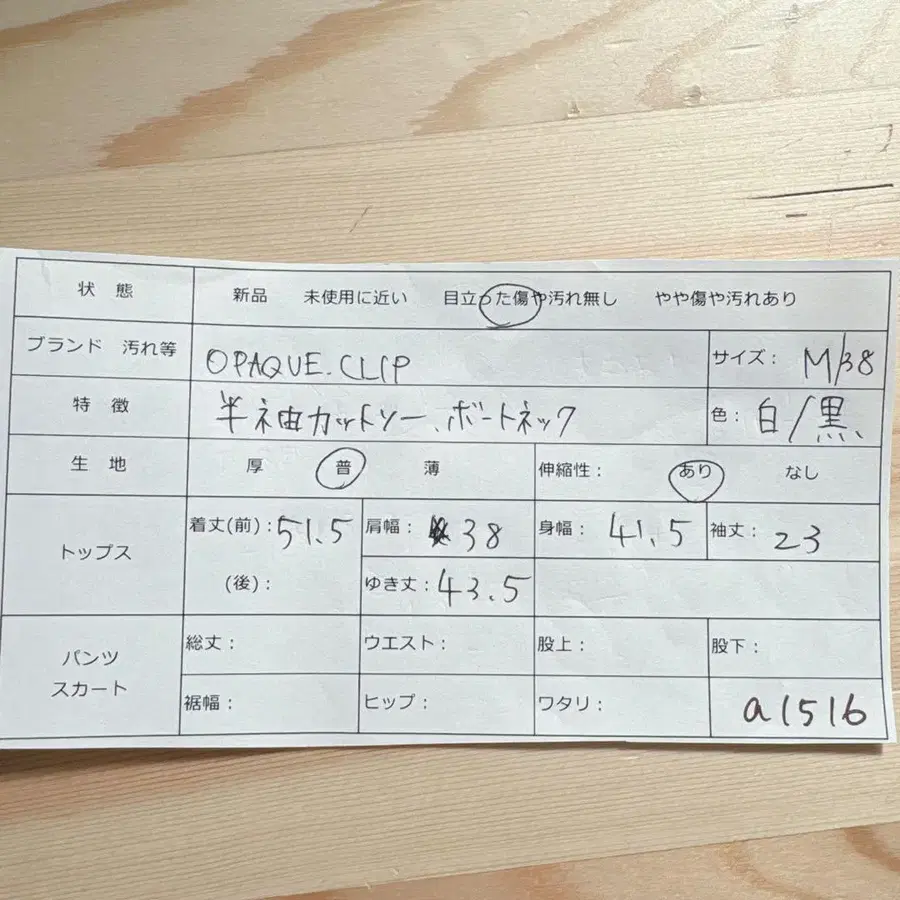 状 態 新品 未使用に近い 目立った傷や汚れ無し やや傷や汚れあり
ブランド 汚れ等 OPAQUE.CLIP サイズ: M/38
特 徴 半袖カットソー、ボートネック 色: 白/黒
生 地 厚 普 薄 伸縮性: あり なし
トップス 着丈(前):51.5 肩幅: 38 身幅: 41.5 袖丈: 23
(後): ゆき丈:43.5
パンツ 総丈: ウエスト: 股上: 股下:
スカート 裾幅: ヒップ: ワタリ: a1516